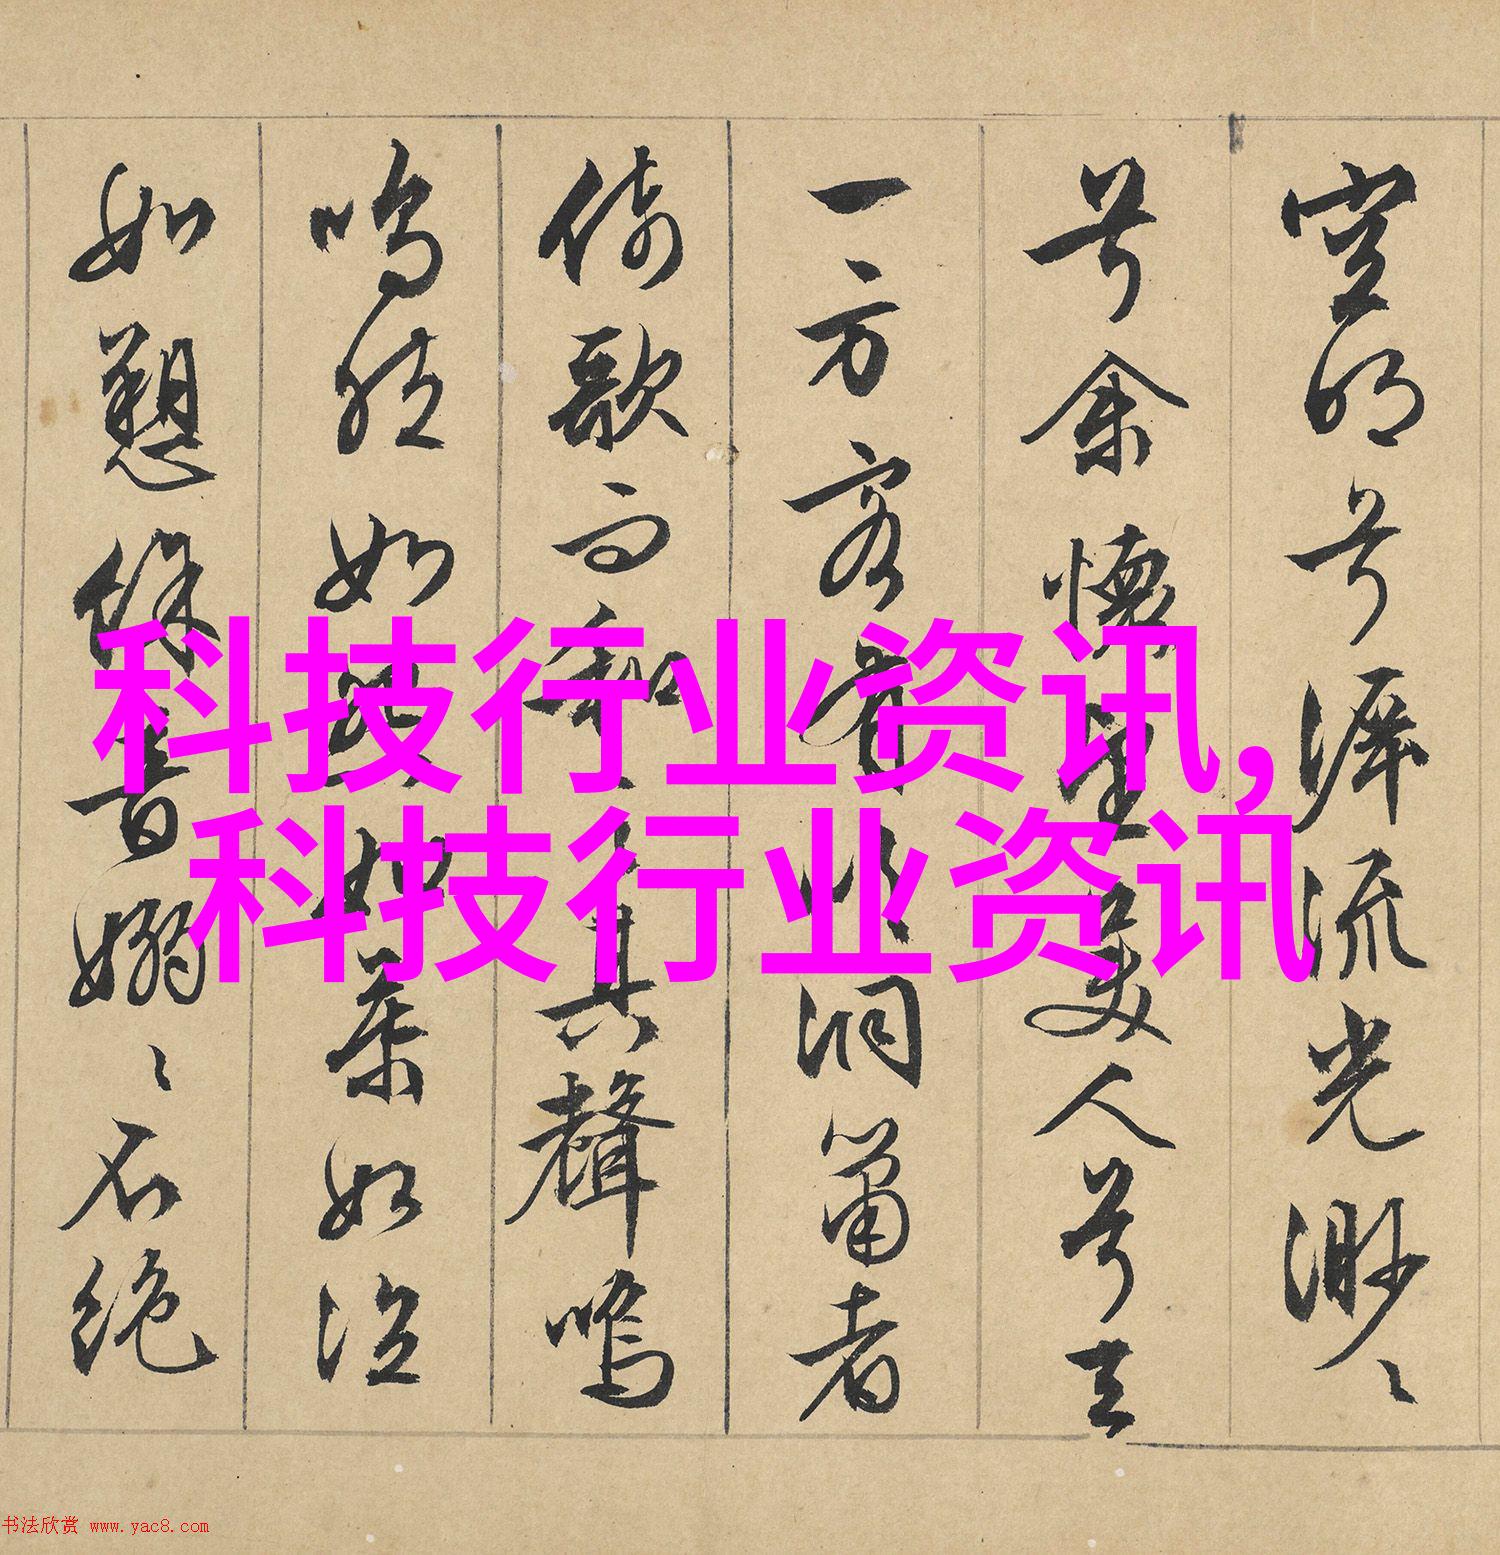 空明兮泝流光渺〻
兮余懷望美人兮天
一方客有吹洞簫者
倚歌而和之其聲嗚
嗚然如怨如慕如泣
如愬餘音嫋〻不絕
科技行业资讯,
科技行业资讯
书法欣赏 www.yac8.com